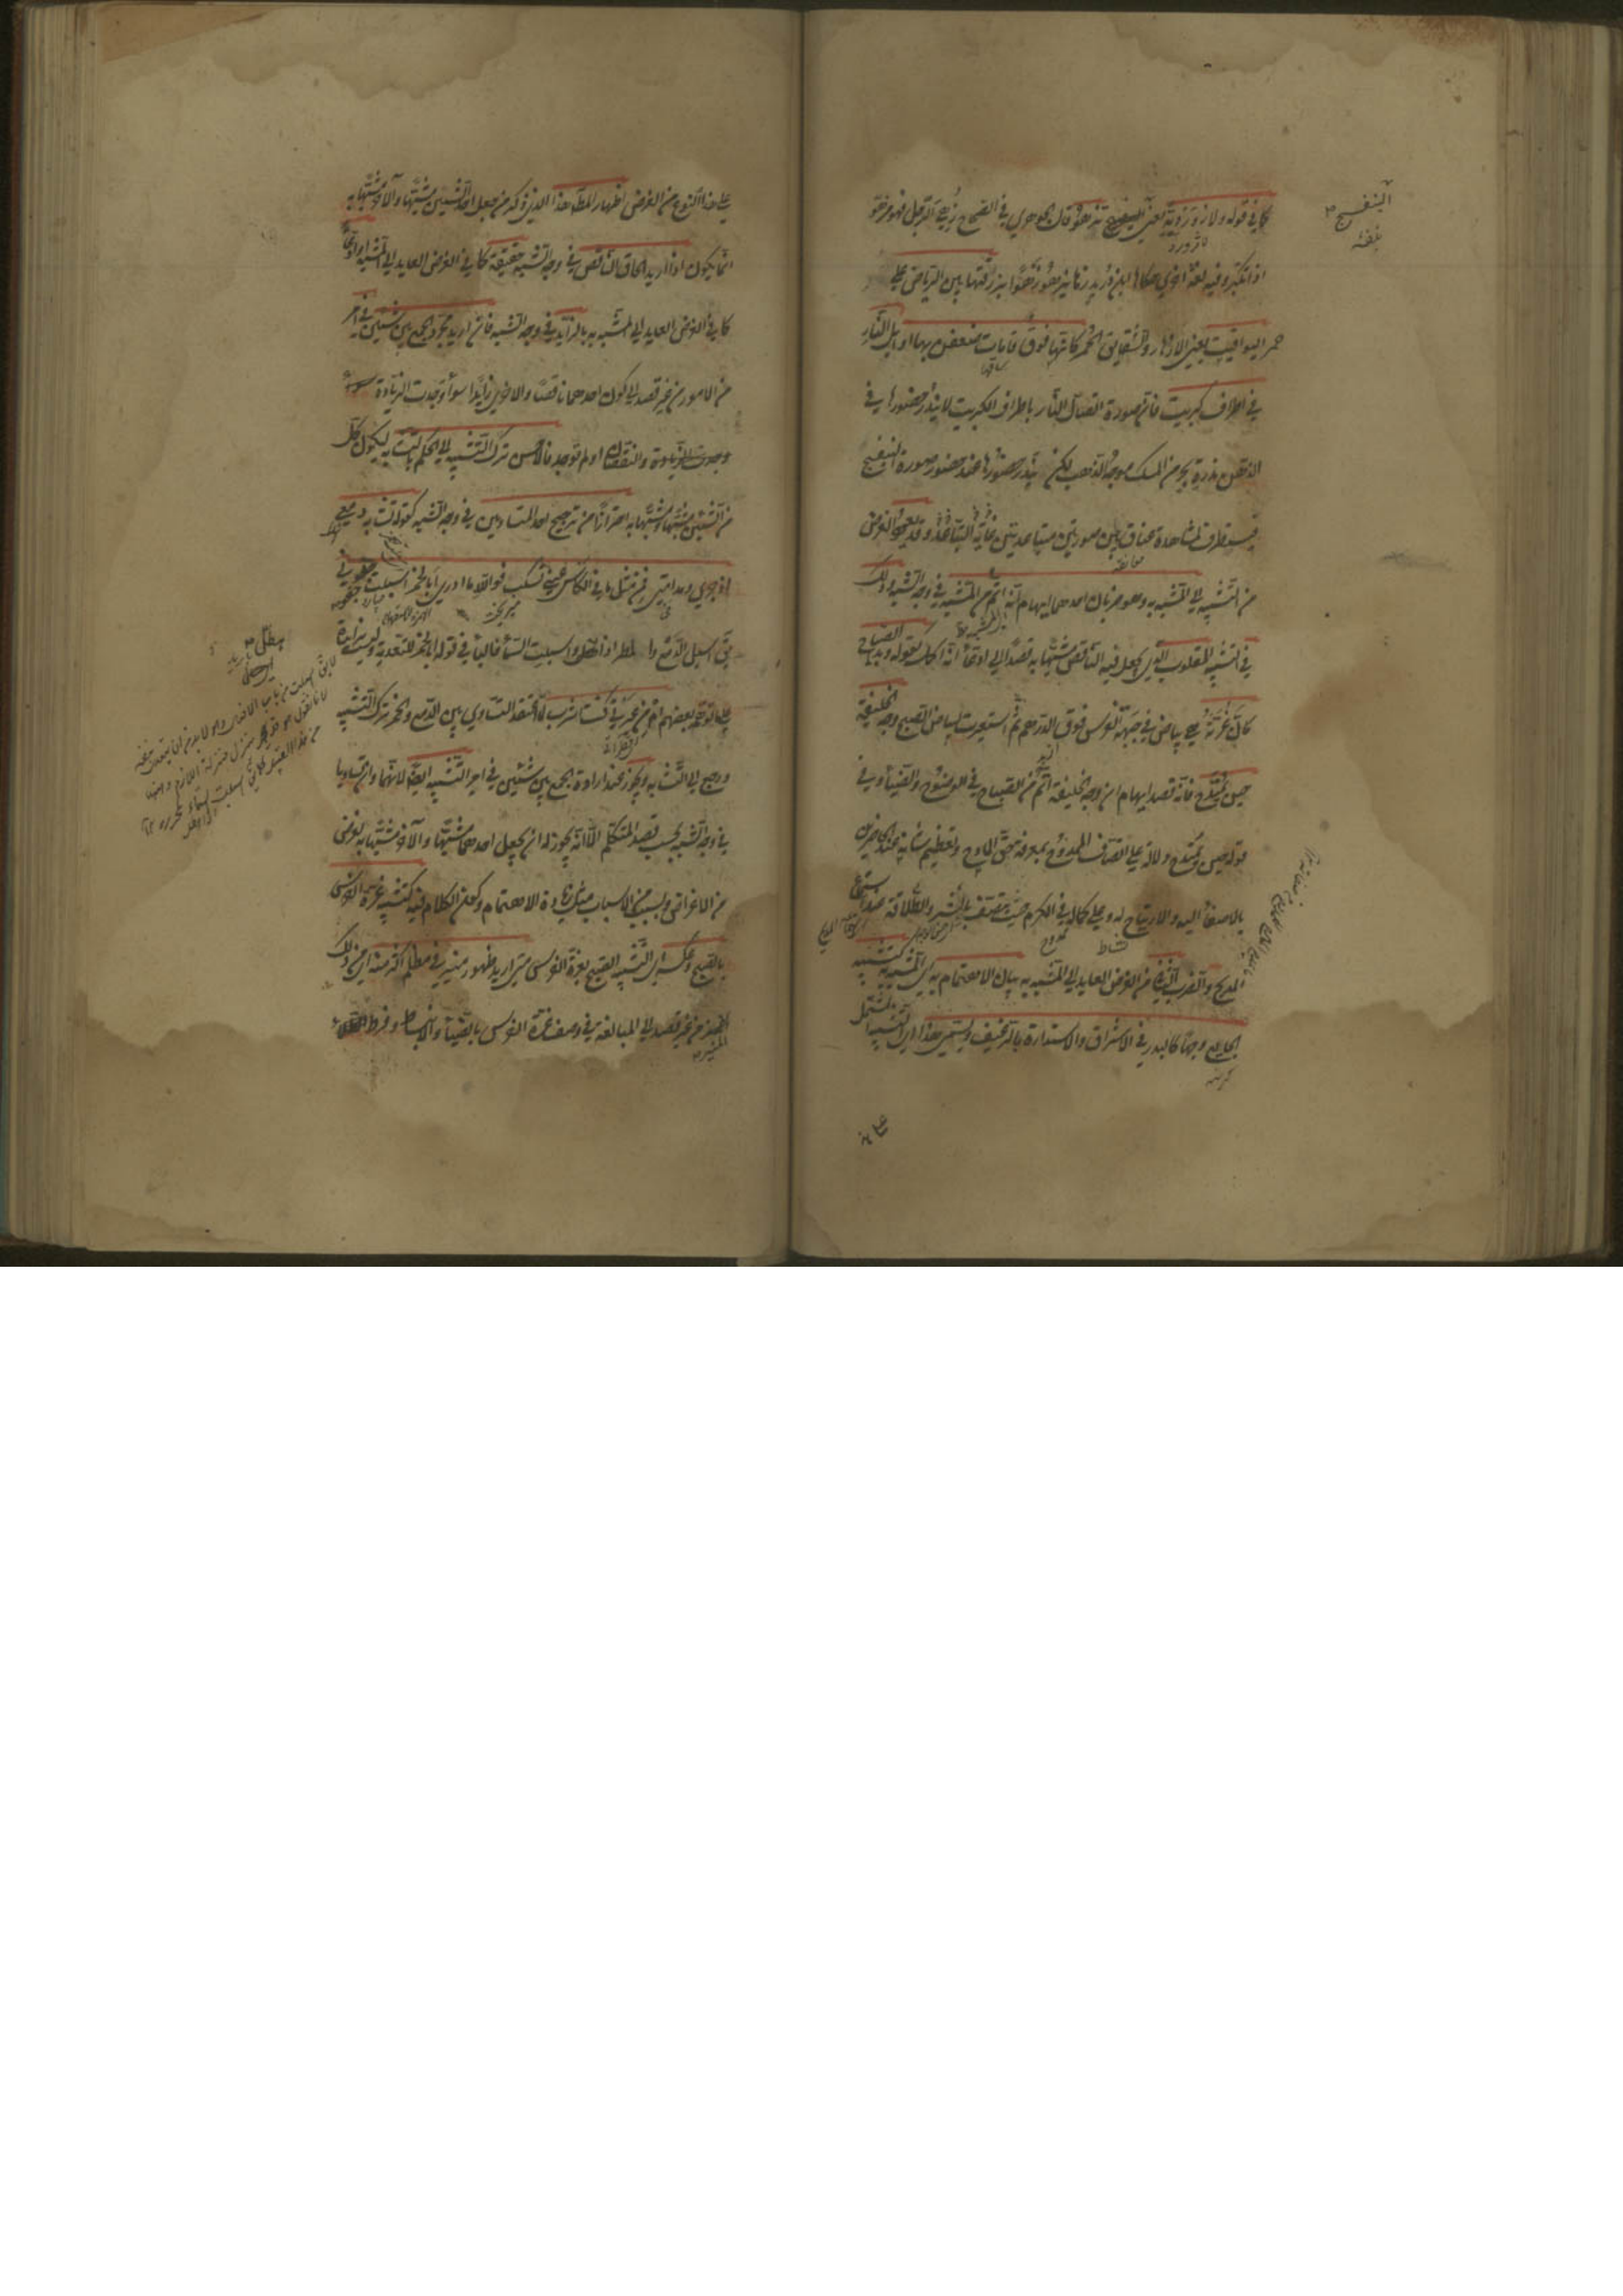 كما في قوله ولازوردية يعني البنفسج تزهو قال الجوهري في الصحاح زهي الرجل فهو مزهو
اذا تكبر وفيه لغة اخرى حكاها ابن دريد زها يزهو زهوا بزرقتها بين الرياض على
حمر اليواقيت يعني الازهار والشقايق الحمر كانها فوق قامات ضعفن بها اوايل النار
في اطراف كبريت فان صورة اتصال النار باطراف الكبريت لا يندر حضورها في
الذهن ندرة بحر من المسك موجه الذهب لكن يندر حضورها عند حضور صورة البنفسج
فيستطرف لمشاهدة عناق بين صورتين متباعدتين غاية التباعد وقد يعود الغرض
من التشبيه الى المشبه به وهو ضربان احدهما ايهام انه اتم من المشبه في وجه التشبيه وذلك
في التشبيه المقلوب الذي يجعل فيه الناقص مشبها به قصدا الى ادعاء انه اكمل كقوله وبدا الصباح
كان غرته هي بياض في جبهة الفرس فوق الدرهم ثم استعيرت لبياض الصبح وجه الخليفة
حين يمتدح فانه قصد ايهام ان وجه الخليفة اتم من الصباح في الوضوح والضياء وفي
قوله حين يمتدح دلالة على اتصاف الممدوح بمعرفة حق المادح وتعظيم شانه عند الحاضرين
بالاصغاء اليه والارتياح له وعلى كماله في الكرم حيث يتصف بالبشر والطلاقة عند استماع
المديح والضرب الثاني من الغرض العايد الى المشبه به بيان الاهتمام به اي المشبه به كتشبيه
الجايع وجها كالبدر في الاشراق والاستدارة بالرغيف ويسمى هذا اي التشبيه المشتمل
البنفسج
على
على هذا النوع من الغرض اظهار المطلوب هذا الذي ذكر من جعل احد الشيئين مشبها والاخر مشبها به
انما يكون اذا اريد الحاق الناقص في وجه التشبيه حقيقة كما في الغرض العايد الى المشبه او ادعاء
كما في الغرض العايد الى المشبه به بالزايد في وجه التشبيه فان اريد مجرد الجمع بين شيئين في امر
من الامور من غير قصد الى كون احدهما ناقصا والاخر زايدا سواء وجدت الزيادة
والنقصان او لم توجد فالاحسن ترك التشبيه الى الحكم بالتشابه ليكون كل
من الشيئين مشبها ومشبها به احترازا من ترجيح احد المتساويين في وجه التشبيه كقوله تشابه دمعي
اذ جرى ومدامتي فمن مثل ما في الكاس عيني تسكب فوالله ما ادري ابالخمر اسبلت جفوني
يق اسبل الدمع والمطر اذا هطل واسبلت السماء فالباء في قوله ابالخمر للتعدية وليست بزايدة
على ما توهم بعضهم ام من عبرتي كنت اشرب لما اعتقد التساوي بين الدمع والخمر ترك التشبيه
ورجع الى التشابه ويجوز عند ارادة الجمع بين شيئين في امر التشبيه ايضا لانهما وان تساويا
في وجه التشبيه بحسب قصد المتكلم الا انه يجوز له ان يجعل احدهما مشبها والاخر مشبها به لغرض
من الاغراض ولسبب من الاسباب مثل زيادة الاهتمام وكون الكلام فيه كتشبيه غرة الفرس
بالصبح وعكسه اي التشبيه الصبح بغرة الفرس متى اريد ظهور منير في مظلم اكثر منه اي من ذلك
المنير من غير قصد الى المبالغة في وصف غرة الفرس بالضياء والانبساط وفرط